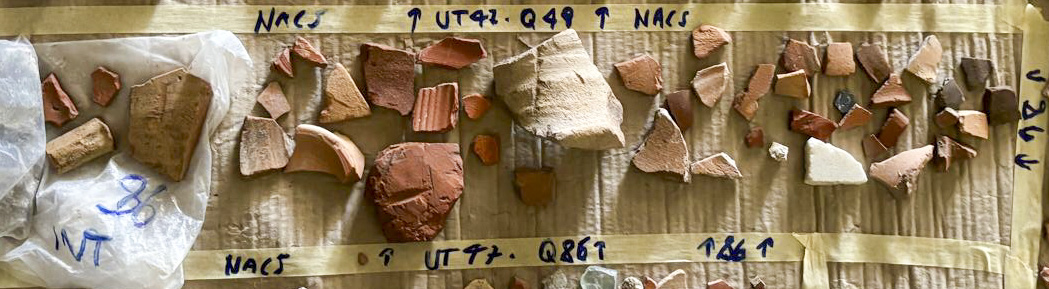 NACS ↑ UT47. Q49 ↑ NACS
↓ 26 ↓
86
INT
NACS ↑ UT47. Q86↑ ↑86↑